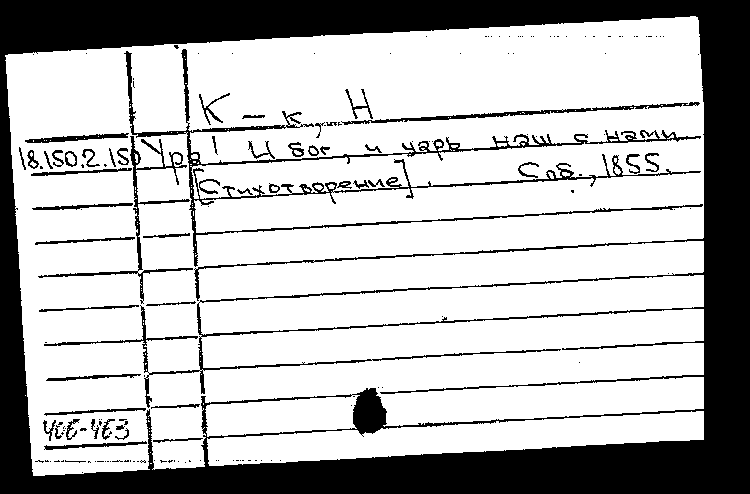 К – к, Н
18.150.2.150 Ура! И бог, и царь наш с нами
[Стихотворение]. Спб., 1855.
406-463